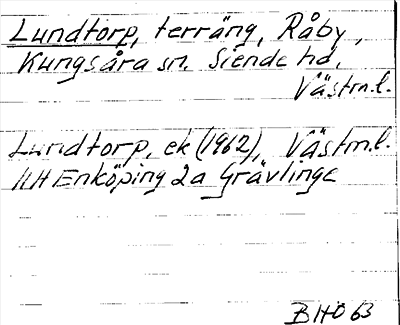 Lundtorp, terräng, Råby,
Kungsåra sn. Siende hd.
Västm.l.
Lundtorp, ek (1962), Västm.l.
11H Enköping 2a Grävlinge
BHO 63